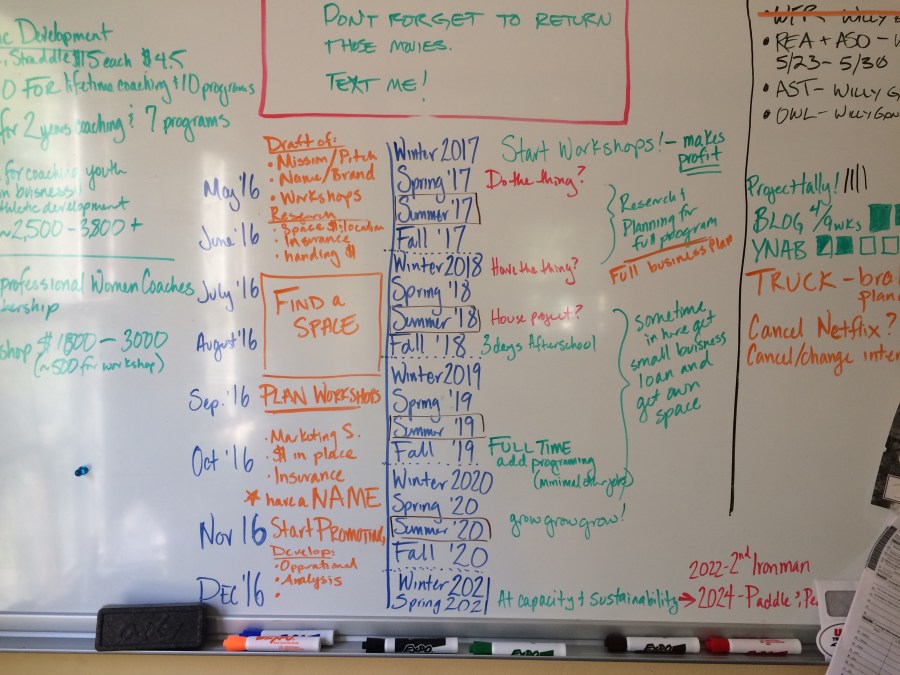 DON'T FORGET TO RETURN
THESE MOVIES.
TEXT ME!
Development
$15 each $45
FOR lifetime coaching + 10 programs
for 2 years coaching & 7 programs
for coaching youth
buisness!
athletic development
~2,500 - 3,800 +
professional Women Coaches
$1800 - 3000
(~500 for workshop)
May '16
June '16
July '16
August '16
Sep. '16
Oct '16
Nov 16
DEC '16
Draft of:
• Mission/Pitch
• Name/Brand
• Workshops
Research
• Space $ location
• Insurance
• handing $
FIND a
SPACE
PLAN WORKSHOPS
• Marketing S.
• $ in place
• Insurance
* have a NAME
Start PROMOTING,
Develop:
• Opprational
• Analysis
•
Winter 2017
Spring '17
Summer '17
Fall '17
Winter 2018
Spring '18
Summer '18
Fall '18
Winter 2019
Spring '19
Summer '19
Fall '19
Winter 2020
Spring '20
Summer '20
Fall '20
Winter 2021
Spring 2021
Start Workshops! - makes
profit
Do the thing?
Research &
Planning for
full program
Full business plan
Have the thing?
House project?
3 days Afterschool
sometime
in here get
small buisness
loan and
get own
space
FULL TIME
add programing
(minimal other jobs)
grow grow grow!
At capacity & Sustainability → 2024 - Paddle
2022 - 2nd Ironman
WFR - WILLY
• REA + ASO -
5/23 - 5/30
• AST - WILLY
• OWL - WILLY GON
Project tally! ||||
BLOG 4/9wks
YNAB
TRUCK - bra
plan
Cancel Netflix?
Cancel/change inter
EXPO
EXPO
EXPO
EXPO